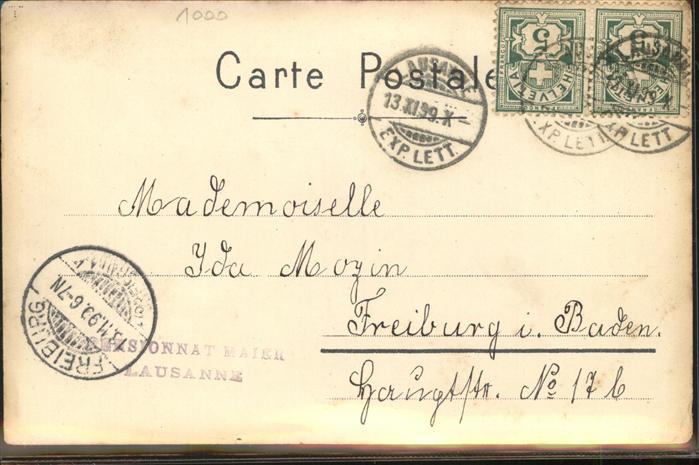 1000
Carte Postale
5
5
HELVETIA
HELVETIA
LAUSANNE
13.XI.99.X
EXP. LETT.
EXP. LETT.
EXP. LETT.
Mademoiselle
Ida Mozin
Freiburg i. Baden.
Hauptstr. No 17 b
FREIBURG
6-7N
PENSIONNAT MAIER
LAUSANNE